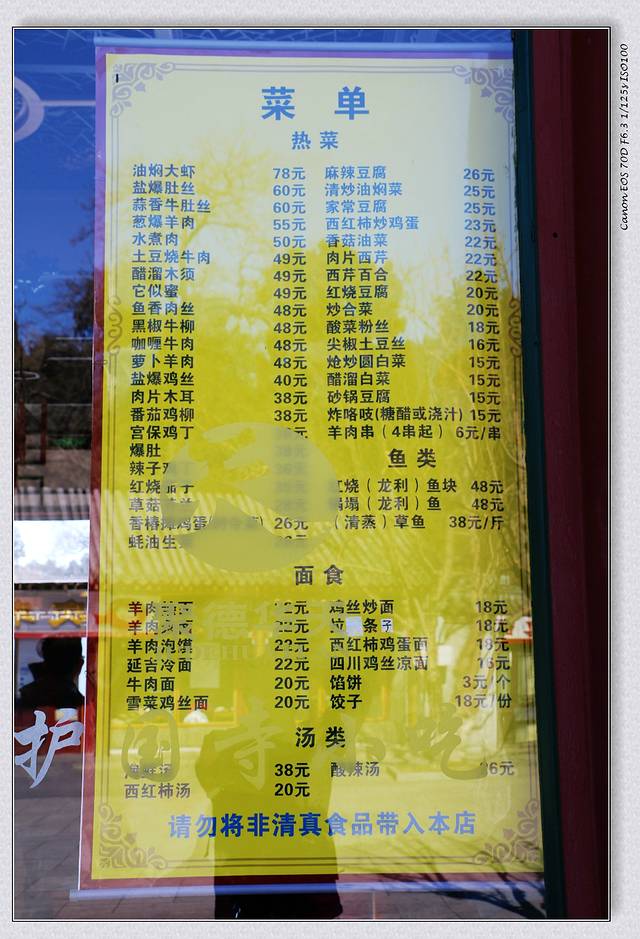 Canon EOS 70D F6.3 1/125y ISO100
菜 单
热 菜
油焖大虾 78元 麻辣豆腐 26元
盐爆肚丝 60元 清炒油焖菜 25元
蒜香牛肚丝 60元 家常豆腐 25元
葱爆羊肉 55元 西红柿炒鸡蛋 23元
水煮肉 50元 香菇油菜 22元
土豆烧牛肉 49元 肉片西芹 22元
醋溜木须 49元 西芹百合 22元
它似蜜 49元 红烧豆腐 20元
鱼香肉丝 48元 炒合菜 20元
黑椒牛柳 48元 酸菜粉丝 18元
咖喱牛肉 48元 尖椒土豆丝 16元
萝卜羊肉 48元 炝炒圆白菜 15元
盐爆鸡丝 40元 醋溜白菜 15元
肉片木耳 38元 砂锅豆腐 15元
番茄鸡柳 38元 炸咯吱(糖醋或浇汁) 15元
宫保鸡丁 羊肉串（4串起）6元/串
爆肚
鱼 类
辣子
红烧茄子 烧（龙利）鱼块 48元
草菇 塌（龙利）鱼 48元
香椿摊鸡蛋 26元 （清蒸）草鱼 38元/斤
蚝油生
面 食
羊肉 面 22元 鸡丝炒面 18元
羊肉 面 22元 拉条子 18元
羊肉泡馍 22元 西红柿鸡蛋面 18元
延吉冷面 22元 四川鸡丝凉面 16元
牛肉面 20元 馅饼 3元/个
雪菜鸡丝面 20元 饺子 18元/份
护国寺小吃
汤 类
38元 酸辣汤 36元
西红柿汤 20元
请勿将非清真食品带入本店